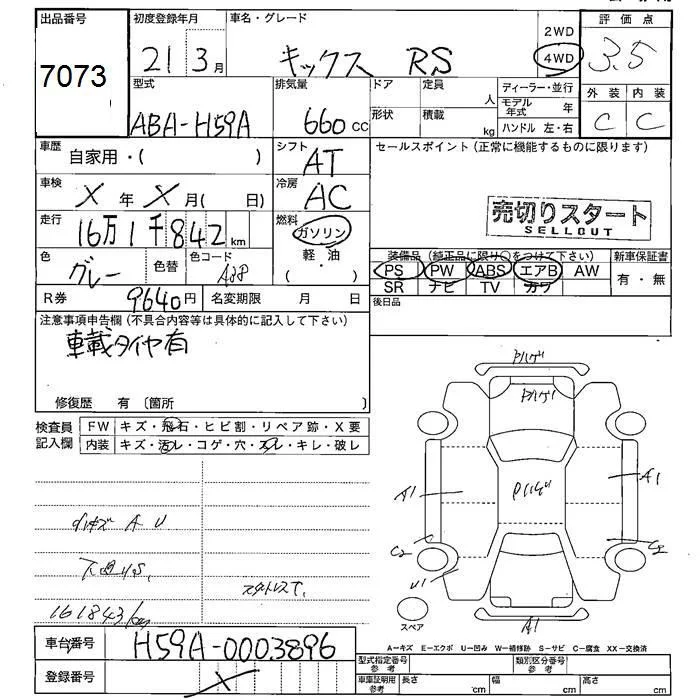 出品番号 初度登録年月 車名・グレード 2WD 評価点
7073 21 3月 キックス RS 4WD 3.5
型式 排気量 ドア 定員 人 ディーラー・並行 外装 内装
ABA-H59A 660 cc 形状 積載 kg モデル年式 年 C C
ハンドル 左・右
車歴 自家用・( ) シフト AT セールスポイント(正常に機能するものに限ります)
車検 X 年 X 月( 日) 冷房 AC
売切りスタート
SELLOUT
走行 16万1千842 km 燃料 ガソリン
軽・油
( )
色 グレー 色替 色コード 装備品(純正品に限り○をつけて下さい) 新車保証書
PS PW ABS エアB AW 有・無
SR ナビ TV カワ
R券 9640円 名変期限 月 日 後日品
注意事項申告欄(不具合内容等は具体的に記入して下さい)
車載タイヤ有
修復歴 有 〔箇所 〕
検査員 FW キズ・飛石・ヒビ割・リペア跡・X要
記入欄 内装 キズ・汚レ・コゲ・穴・スレ・キレ・破レ
Pハゲ
Pハゲ
Pハゲ
A1 A1
C2
U1
A1
スペア
A U
下廻りS,
スタットレスT,
161843km
A-キズ E-エクボ U-凹み W-補修跡 S-サビ C-腐食 XX-交換済
車台番号 H59A-0003896
登録番号 X
型式指定番号 参考 類別区分番号 参考
車庫証明用 参考 長さ cm 幅 cm 高さ cm